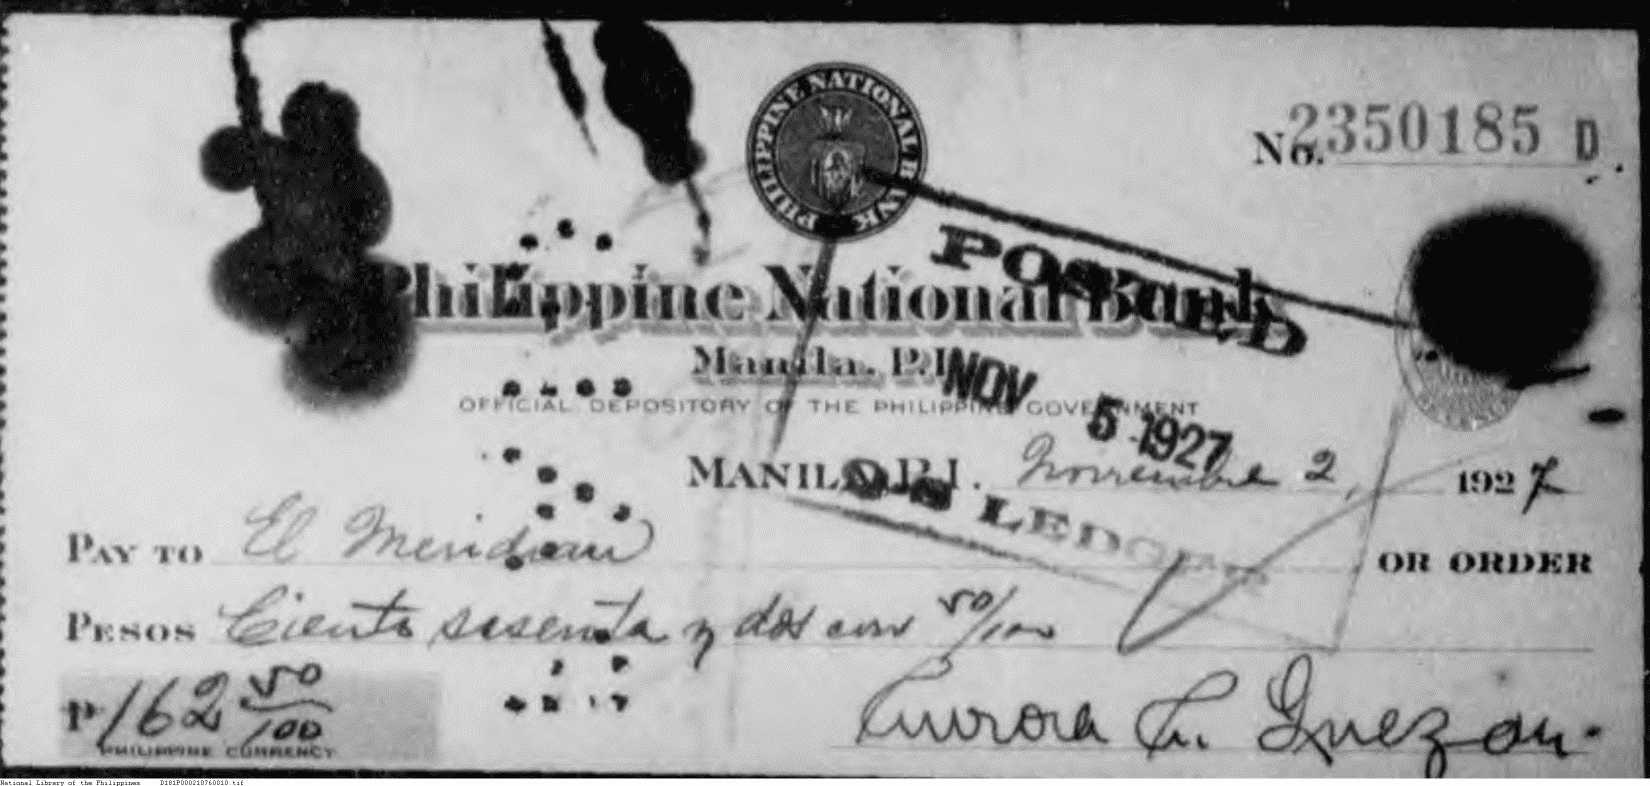 PHILIPPINE NATIONAL BANK
No. 2350185 D
Philippine National Bank
POSTED
Manila, P.I.
NOV 5 1927
OFFICIAL DEPOSITORY OF THE PHILIPPINE GOVERNMENT
MANILA, P.I. Noviembre 2, 1927
ON LEDGER
PAY TO El Meridian OR ORDER
PESOS Ciento sesenta y dos con 50/100
P 162 50/100
PHILIPPINE CURRENCY
Aurora A. Quezon.
National Library of the Philippines D181P000210760010.tif